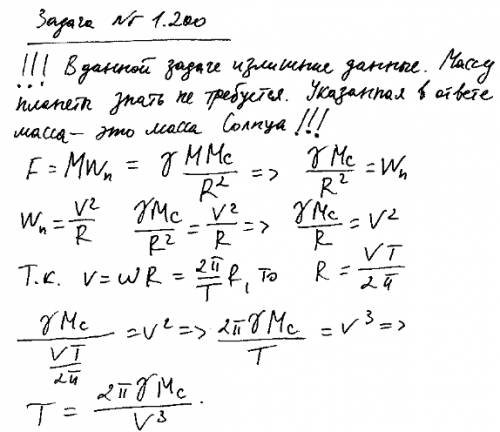 Задача № 1.200
!!! В данной задаче излишние данные. Массу
планеты знать не требуется. Указанная в ответе
масса – это масса Солнца !!!
F = MWₙ = γ MMc/R² => γMc/R² = Wₙ
Wₙ = V²/R γMc/R² = V²/R => γMc/R = V²
Т.к. V = ωR = 2π/T R, то R = VT/2π
γMc/(VT/2π) = V² => 2πγMc/T = V³ =>
T = 2πγMc/V³.